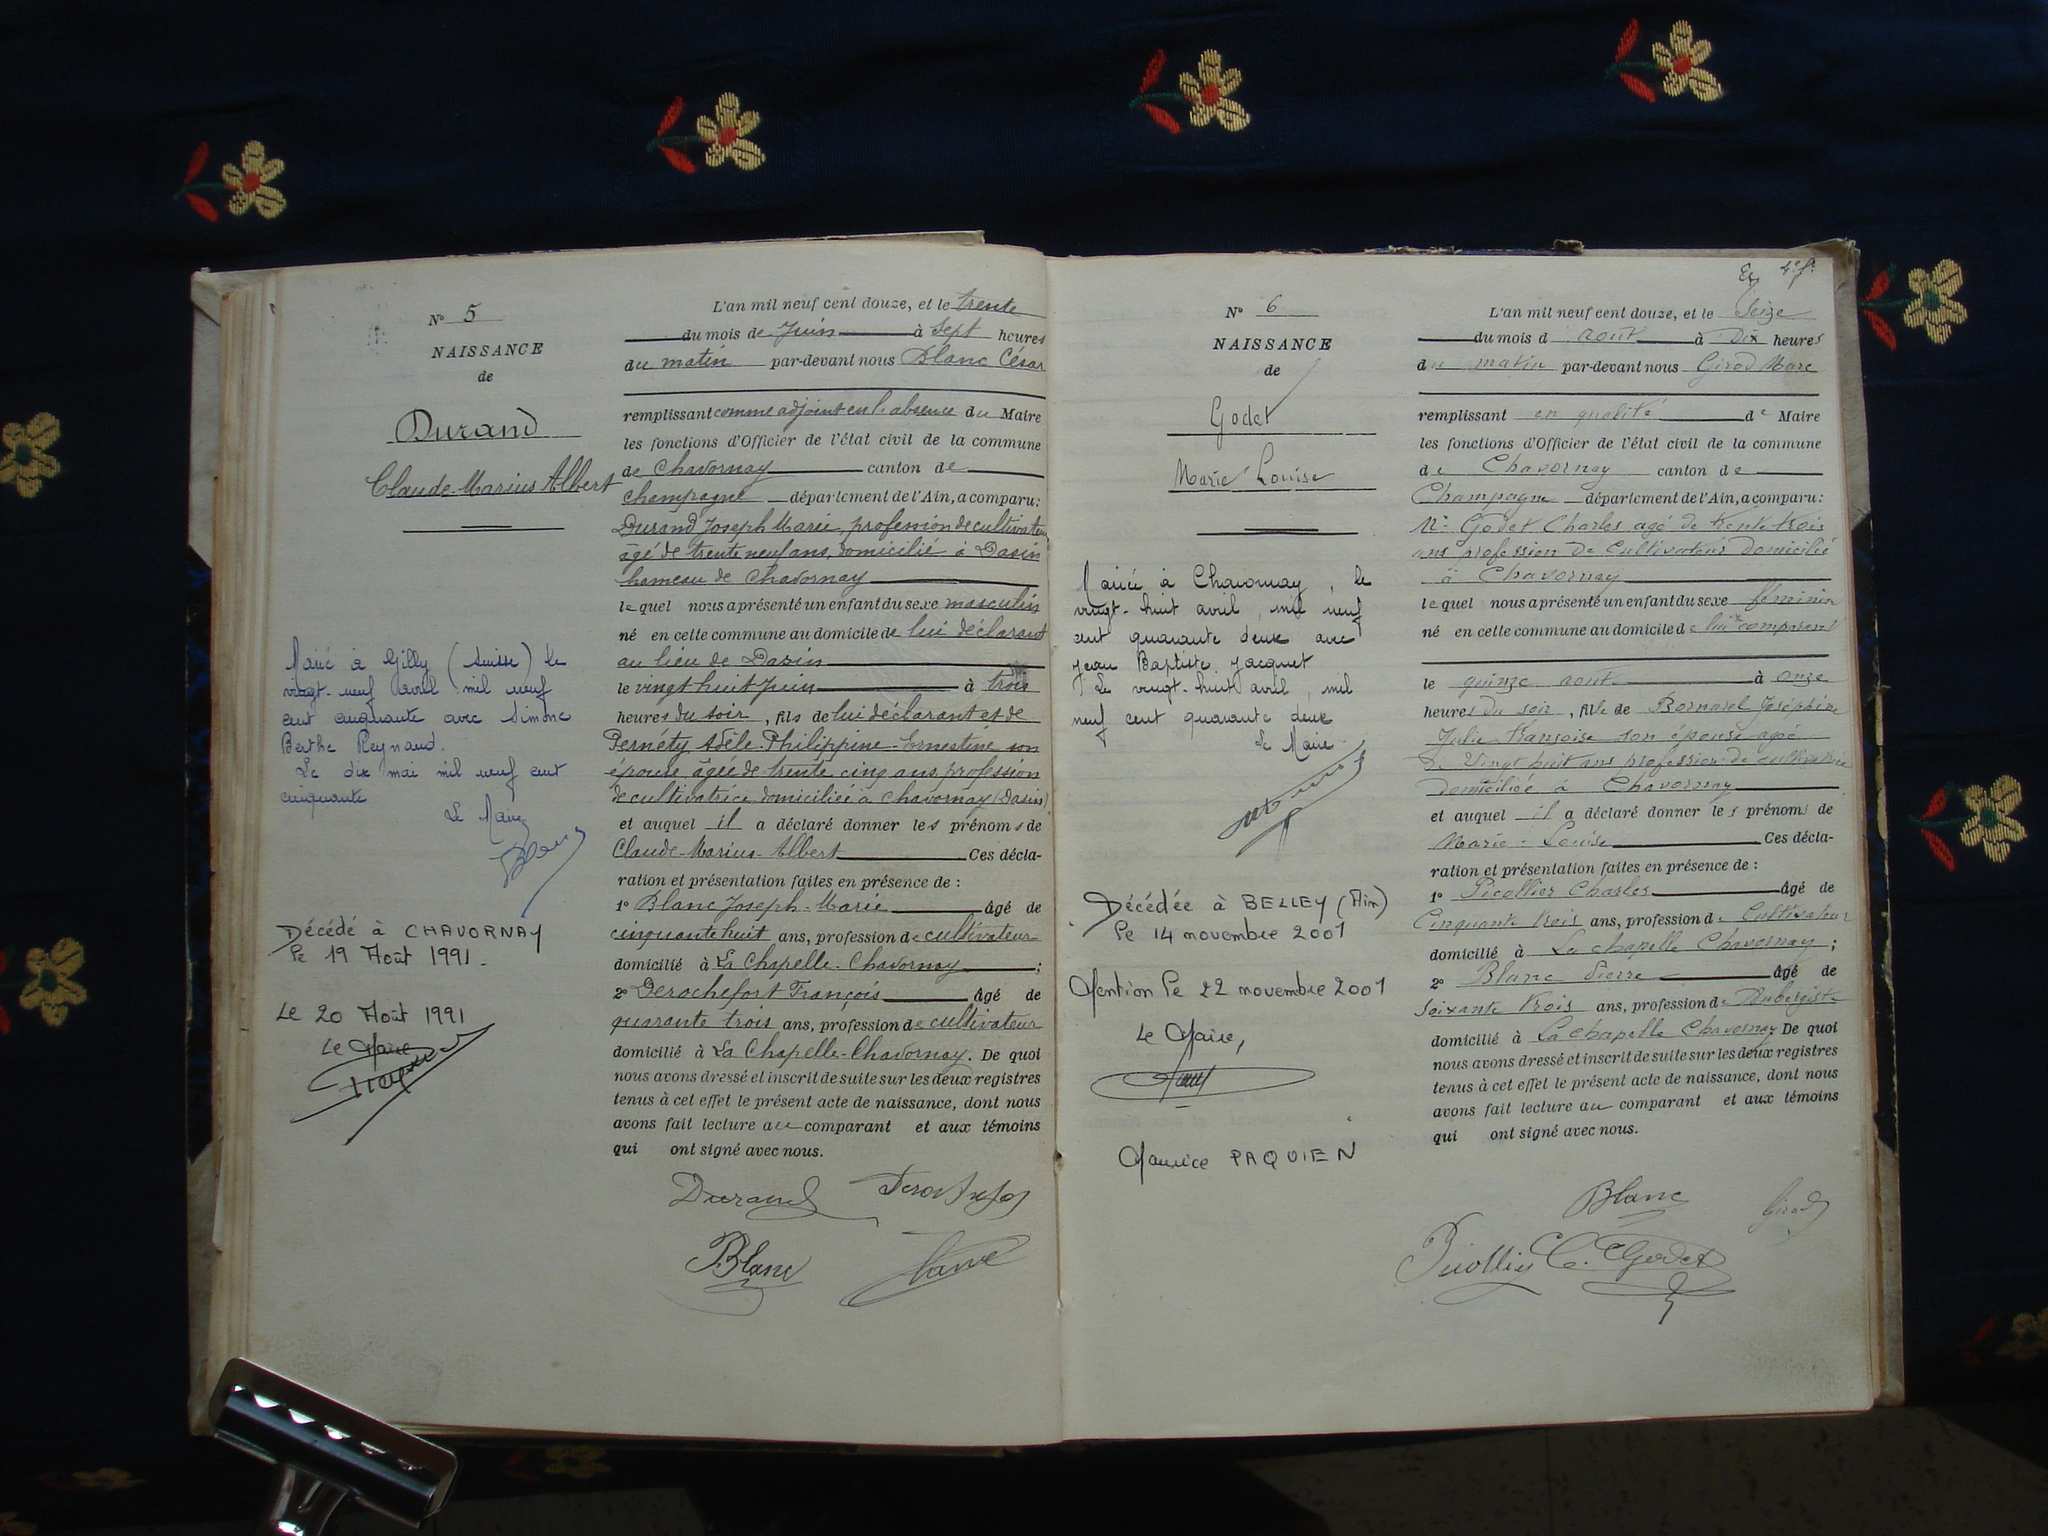 N° 5
NAISSANCE
de
Durand
Claude Marius Albert
Marié à Gilly (Suisse) le
vingt-neuf avril mil neuf
cent cinquante avec Simone
Berthe Reynaud.
Le dix mai mil neuf cent
cinquante
Le Maire
Décédé à CHAVORNAY
le 19 Août 1991.
Le 20 Août 1991
Le Maire
L'an mil neuf cent douze, et le trente
du mois de Juin à sept heures
du matin par-devant nous Blanc César
remplissant comme adjoint en l'absence du Maire
les fonctions d'Officier de l'état civil de la commune
de Chavornay canton de
Champagne département de l'Ain, a comparu:
Durand Joseph Marie, profession de cultivateur
âgé de trente neuf ans, domicilié à Dasin
hameau de Chavornay
lequel nous a présenté un enfant du sexe masculin
né en cette commune au domicile de lui déclarant
au lieu de Dasin
le vingt huit Juin à trois
heures du soir, fils de lui déclarant et de
Pernéty Adèle-Philippine-Ernestine son
épouse âgée de trente cinq ans, profession
de cultivatrice domiciliée à Chavornay (Dasin)
et auquel il a déclaré donner les prénoms de
Claude-Marius-Albert Ces décla-
ration et présentation faites en présence de :
1° Blanc Joseph-Marie âgé de
cinquante huit ans, profession de cultivateur
domicilié à La Chapelle-Chavornay ;
2° Derochefort François âgé de
quarante trois ans, profession de cultivateur
domicilié à La Chapelle-Chavornay. De quoi
nous avons dressé et inscrit de suite sur les deux registres
tenus à cet effet le présent acte de naissance, dont nous
avons fait lecture au comparant et aux témoins
qui ont signé avec nous.
Durand
Blanc
N° 6
NAISSANCE
de
Godet
Marie Louise
Mariée à Chavornay, le
vingt-huit avril, mil neuf
cent quarante deux avec
Jean Baptiste Jacquet
Le vingt-huit avril, mil
neuf cent quarante deux
Le Maire
Décédée à BELLEY (Ain)
le 14 novembre 2001
Mention le 22 novembre 2001
Le Maire,
Maurice PAQUIEN
L'an mil neuf cent douze, et le Seize
du mois d août à Dix heures
du matin par-devant nous Girod Marc
remplissant en qualité de Maire
les fonctions d'Officier de l'état civil de la commune
de Chavornay canton de
Champagne département de l'Ain, a comparu:
Mr Godet Charles agé de trente trois
ans profession de Cultivateur Domicilié
à Chavornay
lequel nous a présenté un enfant du sexe féminin
né en cette commune au domicile de lui comparant
le quinze août à onze
heures du soir, fille de Bornarel Joséphine
Julie Françoise son épouse agée
de Vingt huit ans profession de cultivatrice
domiciliée à Chavornay
et auquel il a déclaré donner les prénoms de
Marie-Louise Ces décla-
ration et présentation faites en présence de :
1° Picollier Charles âgé de
Cinquante trois ans, profession de Cultivateur
domicilié à La chapelle Chavornay ;
2° Blanc Pierre âgé de
Soixante trois ans, profession de Aubergiste
domicilié à La chapelle Chavornay De quoi
nous avons dressé et inscrit de suite sur les deux registres
tenus à cet effet le présent acte de naissance, dont nous
avons fait lecture au comparant et aux témoins
qui ont signé avec nous.
Blanc Girod
C. Godet